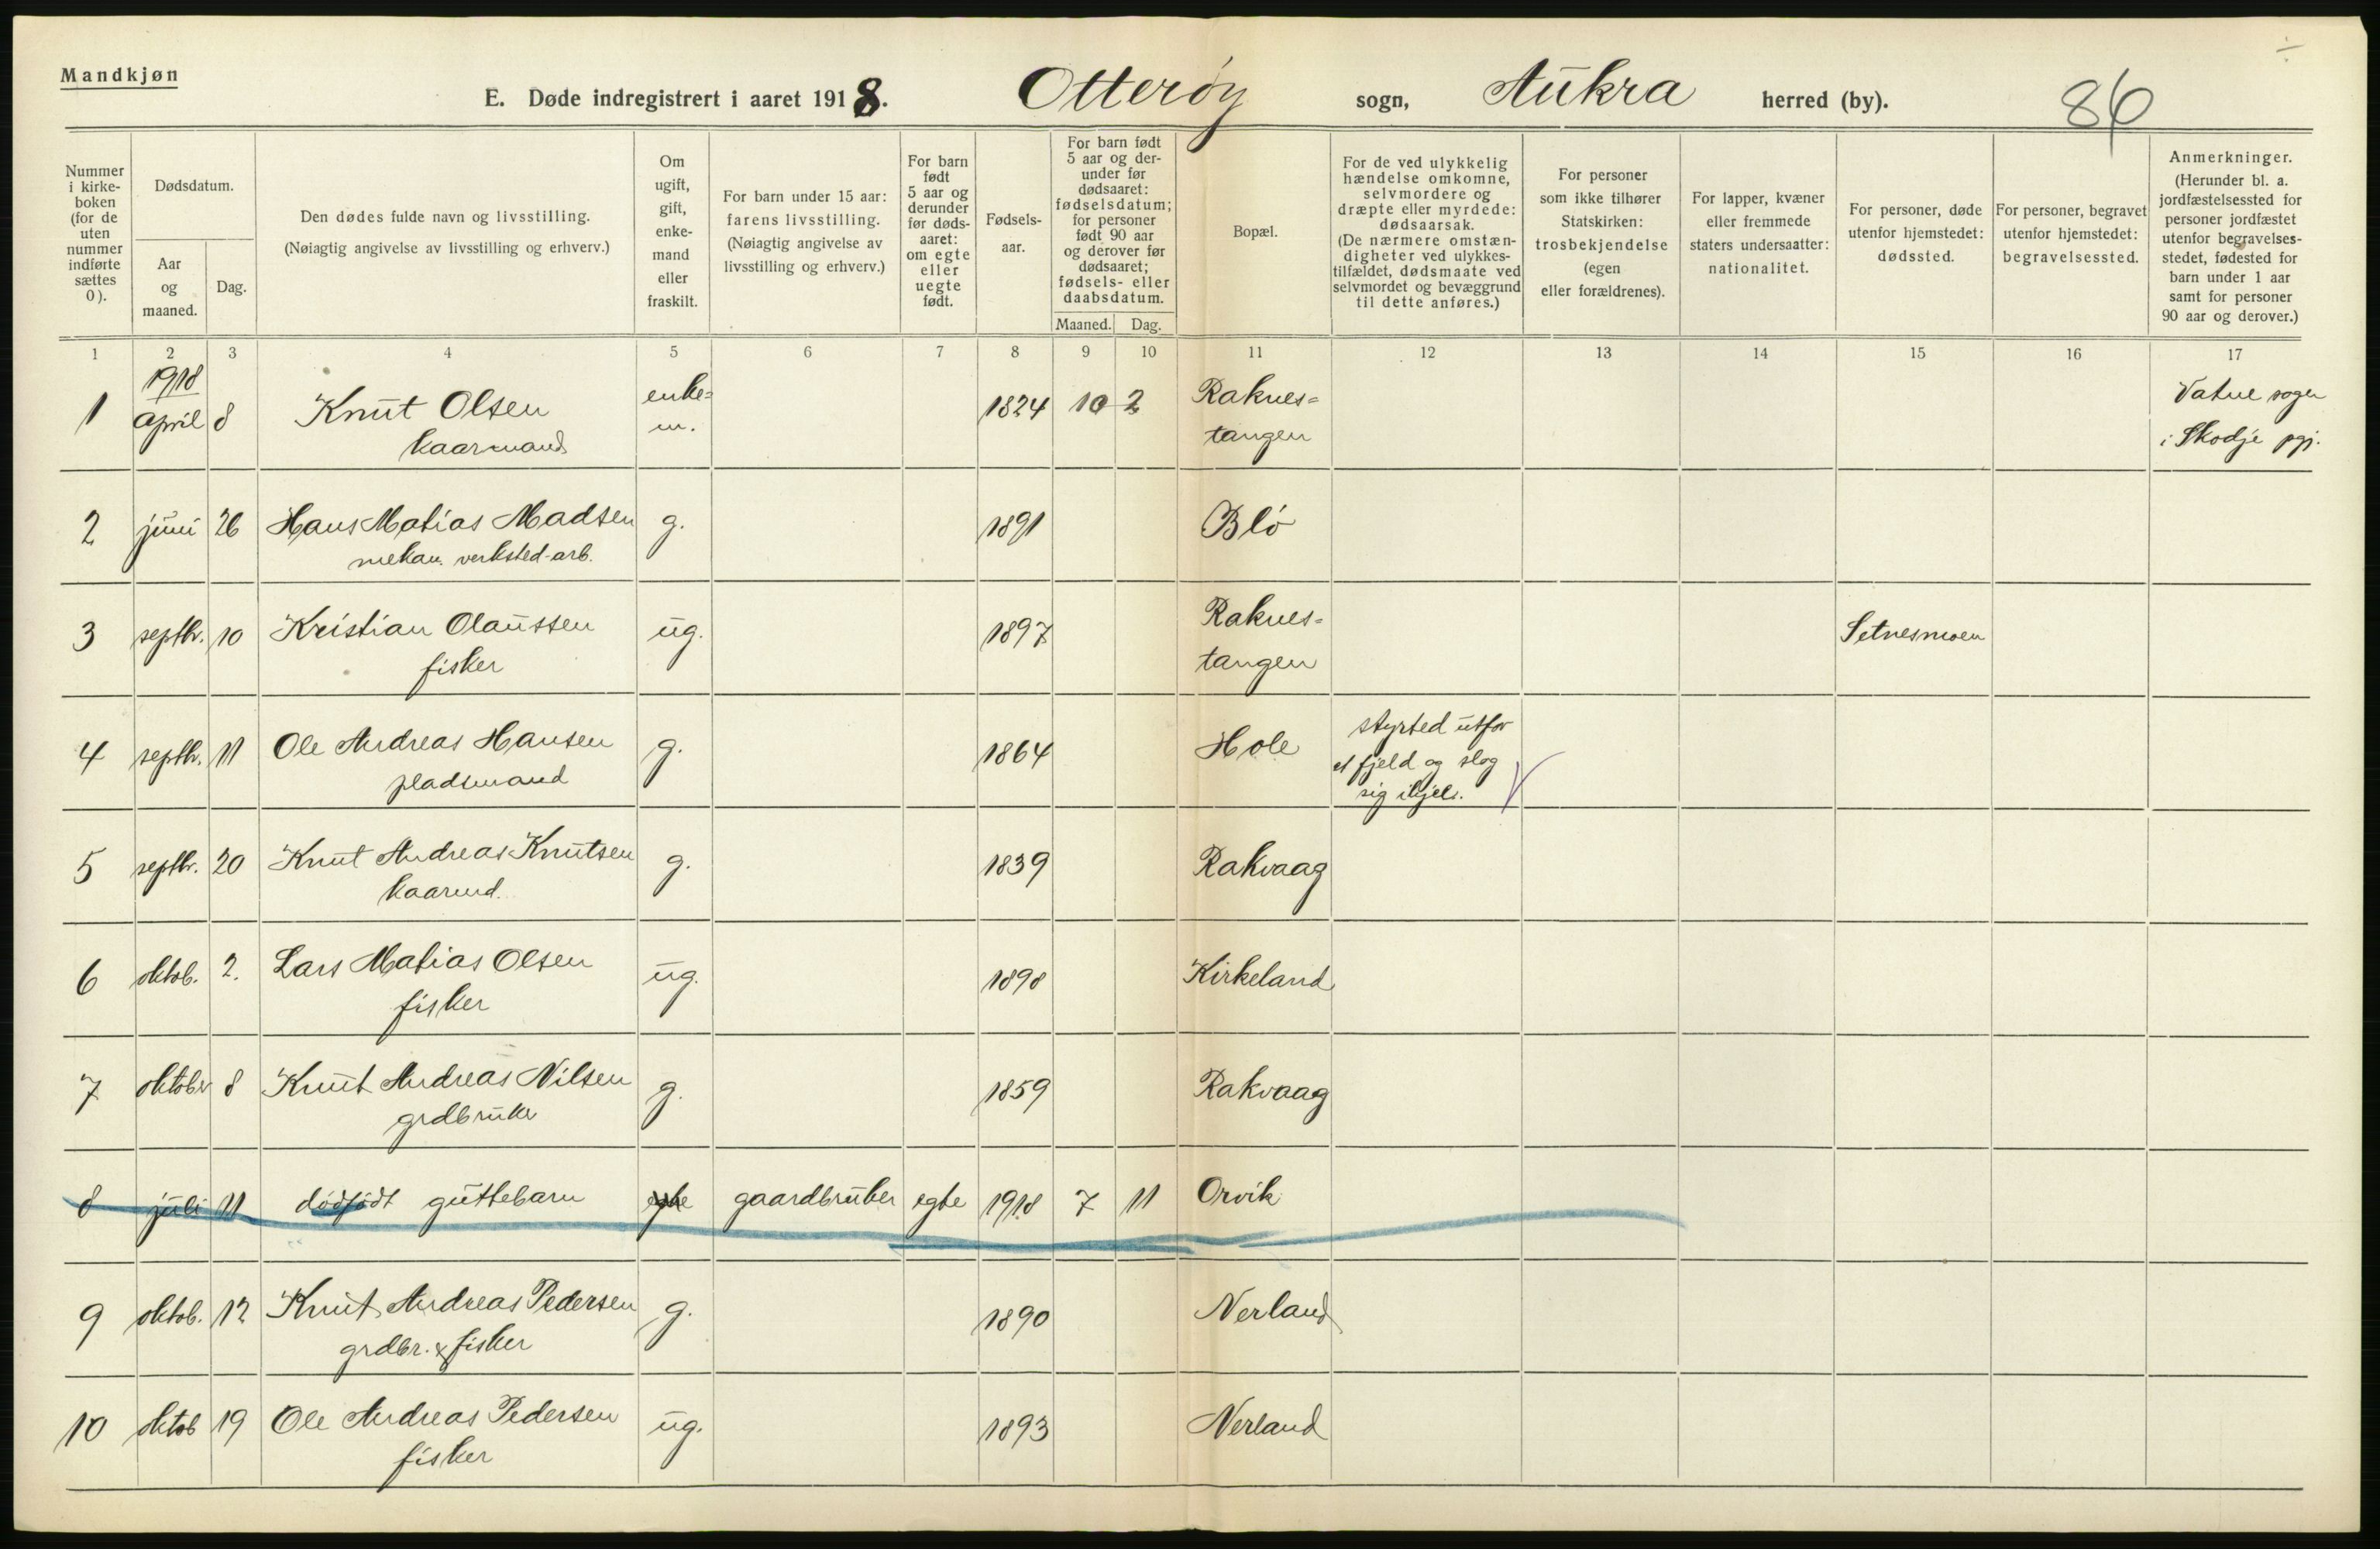 Mandkjøn
E. Døde indregistrert i aaret 1918. Otterøy sogn, Aukra herred (by). 86
Nummer i kirke-boken (for de uten nummer indførte sættes 0).
Dødsdatum.
Aar og maaned.
Dag.
Den dødes fulde navn og livsstilling.
(Nøiagtig angivelse av livsstilling og erhverv.)
Om ugift, gift, enke-mand eller fraskilt.
For barn under 15 aar: farens livsstilling.
(Nøiagtig angivelse av livsstilling og erhverv.)
For barn født 5 aar og derunder før døds-aaret: om egte eller uegte født.
Fødsels-aar.
For barn født 5 aar og der-under før dødsaaret: fødselsdatum; for personer født 90 aar og derover før dødsaaret; fødsels- eller daabsdatum.
Maaned. Dag.
Bopæl.
For de ved ulykkelig hændelse omkomne, selvmordere og dræpte eller myrdede: dødsaarsak.
(De nærmere omstæn-digheter ved ulykkes-tilfældet, dødsmaate ved selvmordet og bevæggrund til dette anføres.)
For personer som ikke tilhører Statskirken: trosbekjendelse (egen eller forældrenes).
For lapper, kvæner eller fremmede staters undersaatter: nationalitet.
For personer, døde utenfor hjemstedet: dødssted.
For personer, begravet utenfor hjemstedet: begravelsessted.
Anmerkninger.
(Herunder bl. a. jordfæstelsessted for personer jordfæstet utenfor begravelses-stedet, fødested for barn under 1 aar samt for personer 90 aar og derover.)
1 2 3 4 5 6 7 8 9 10 11 12 13 14 15 16 17
1918
1 april 8 Knut Olsen enke= 1824 10 2 Raknes= Vatne sogn
kaarmand m. tangen i Skodje pgj.
2 juni 26 Hans Matias Madsen g. 1891 Blø
mekan. verksted-arb.
3 septbr. 10 Kristian Olaussen ug. 1897 Raknes= Setnesmoen
fisker tangen
4 septbr. 11 Ole Andreas Hansen g. 1864 Hole styrted utfor
pladsmand et fjeld og slog
sig ihjel.
5 septbr. 20 Knut Andreas Knutsen g. 1839 Rakvaag
kaarmd.
6 oktob. 2. Lars Matias Olsen ug. 1898 Kirkeland
fisker
7 oktober 8 Knut Andreas Nilsen g. 1859 Rakvaag
grdbruker
8 juli 11 dødfødt guttebarn egte gaardbruker egte 1918 7 11 Orvik
9 oktob. 12 Knut Andreas Pedersen g. 1890 Nerland
grdbr. & fisker
10 oktob 19 Ole Andreas Pedersen ug. 1893 Nerland
fisker